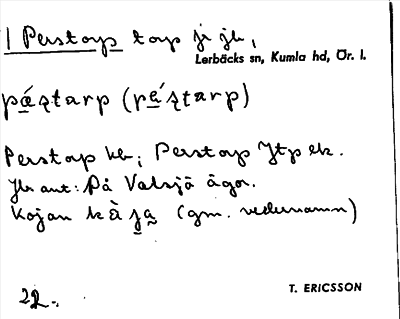 Perstorp torp i jb,
Lerbäcks sn, Kumla hd, Ör. l.
páʂtarp (pɛ́ʂtarp)
Perstorp kb; Perstorp Jtp ek.
Jbr ant: På Valsjö ägor.
Kojan (gm. vedernamn)
22.
T. ERICSSON